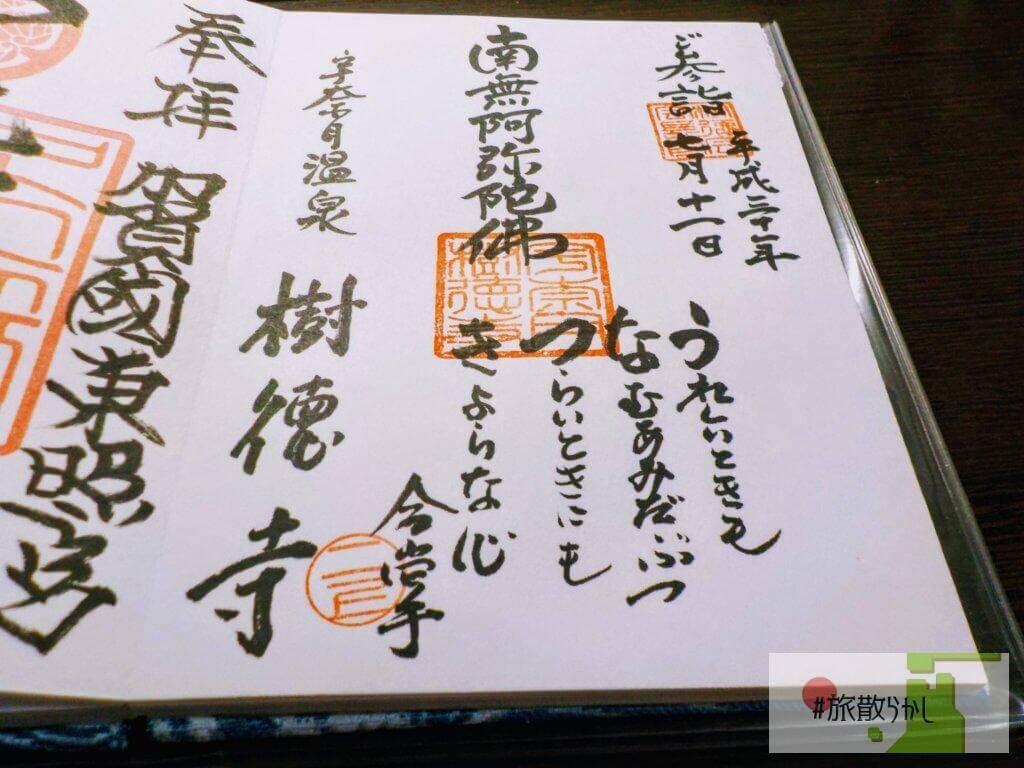 ご参詣
平成三十年
七月十一日
うれしいときも
なむあみだぶつ
つらいときにも
きよらな心
合掌
南無阿弥陀佛
宇奈月温泉
樹徳寺
奉拝
賀國東照宮
#旅散らかし